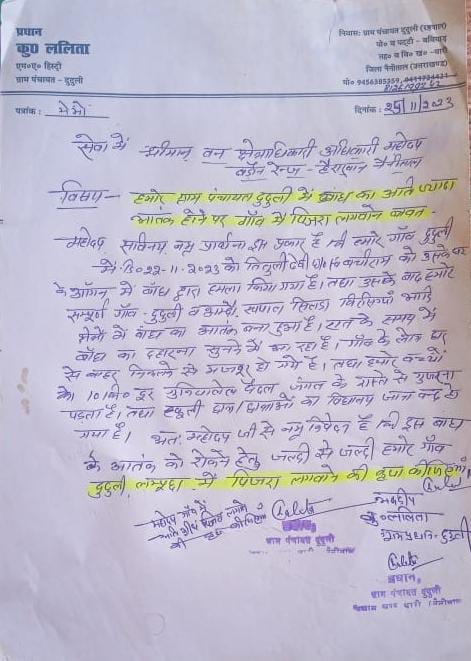 प्रधान
कु० ललिता
एम०ए० हिस्ट्री
ग्राम पंचायत - दुदुली
निवास: ग्राम पंचायत दुदुली (रहपाल)
पो० व पट्टी -
जिला नैनीताल (उत्तराखण्ड)
मो० 9456385359,
पत्रांक : मेमो
दिनांक : 25/11/2023
सेवा में श्रीमान् वन क्षेत्राधिकारी अधिकारी महोदय
रेन्ज - नैनीताल
विषय- हमारे ग्राम पंचायत दुदुली में बाघ का अति ज्यादा
आतंक होने पर गाँव में पिंजरा लगवाने बावत
महोदय सविनय नम्र प्रार्थना इस प्रकार है कि हमारे गाँव दुदुली
में दि० 22-11-2023 को देवी को उसके घर
के आँगन में बाघ द्वारा हमला किया गया है। तथा उसके बाद हमारे
सम्पूर्ण गाँव - दुदुली व आदि
में बाघ का आतंक बना हुआ है। रात के समय में
बाघ का दहाड़ना सुनने में आ रहा है। गाँव के लोग घर
से बाहर निकलने से मजबूर हो गये है। तथा हमारे बच्चों
के 10 कि०मी० दूर पैदल जंगल के रास्ते से गुजरना
पड़ता है। तथा स्कूली छात्र/छात्राओं का विद्यालय जाना बन्द हो
गया है। अतः महोदय जी से नम्र निवेदन है कि इस बाघ
के आतंक को रोकने हेतु जल्दी से जल्दी हमारे गाँव
दुदुली, में पिंजरा लगवाने की कृपा कीजिएगा
महोदय गाँव में
अति शीघ्र पिंजरा लगाने
की कृपा कीजिएगा
Lalita
ग्राम पंचायत दुदुली
भवदीय
कु० ललिता
ग्राम प्रधान - दुदुली
Lalita
प्रधान,
ग्राम पंचायत दुदुली
विकास खण्ड धारी (नैनीताल)